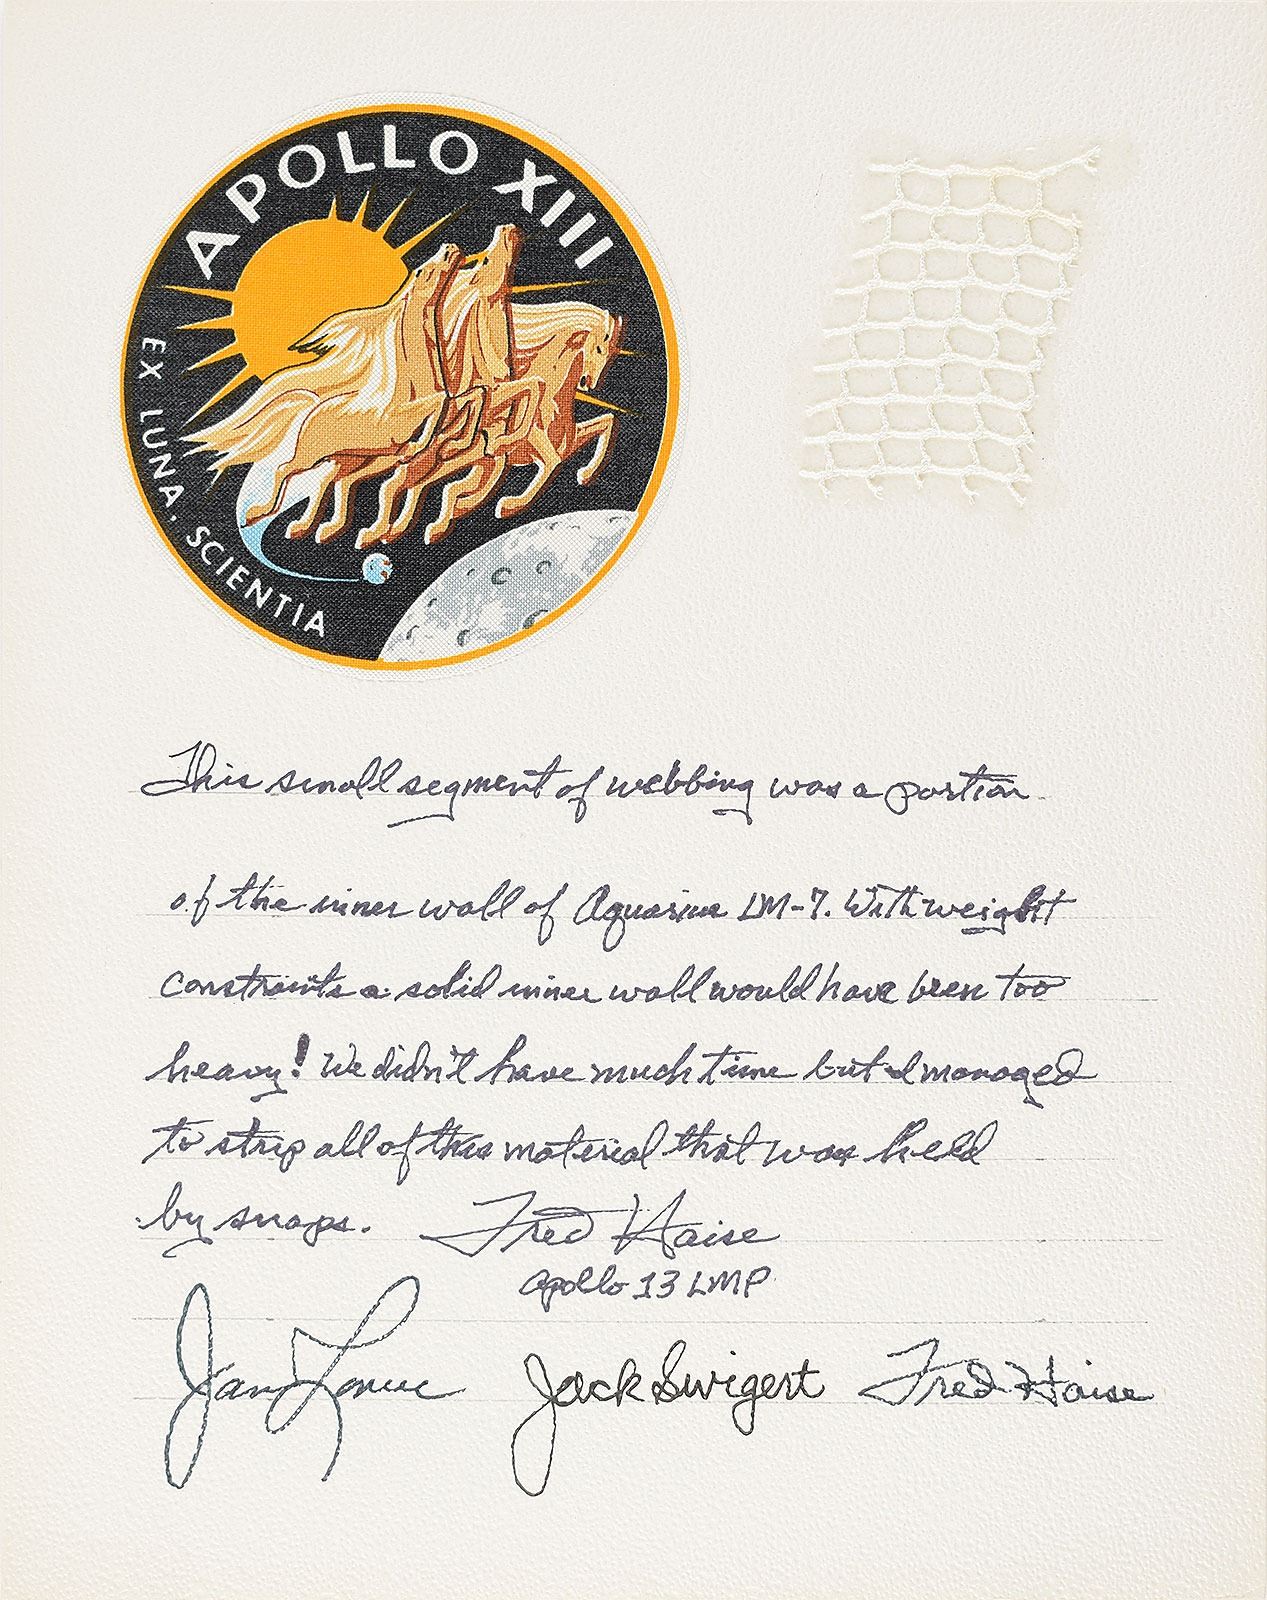 APOLLO XIII
EX LUNA, SCIENTIA
This small segment of webbing was a portion
of the inner wall of Aquarius LM-7. With weight
constraints a solid inner wall would have been too
heavy! We didn't have much time but I managed
to strip all of this material that was held
by snaps. Fred Haise
Apollo 13 LMP
James Lovell Jack Swigert Fred Haise